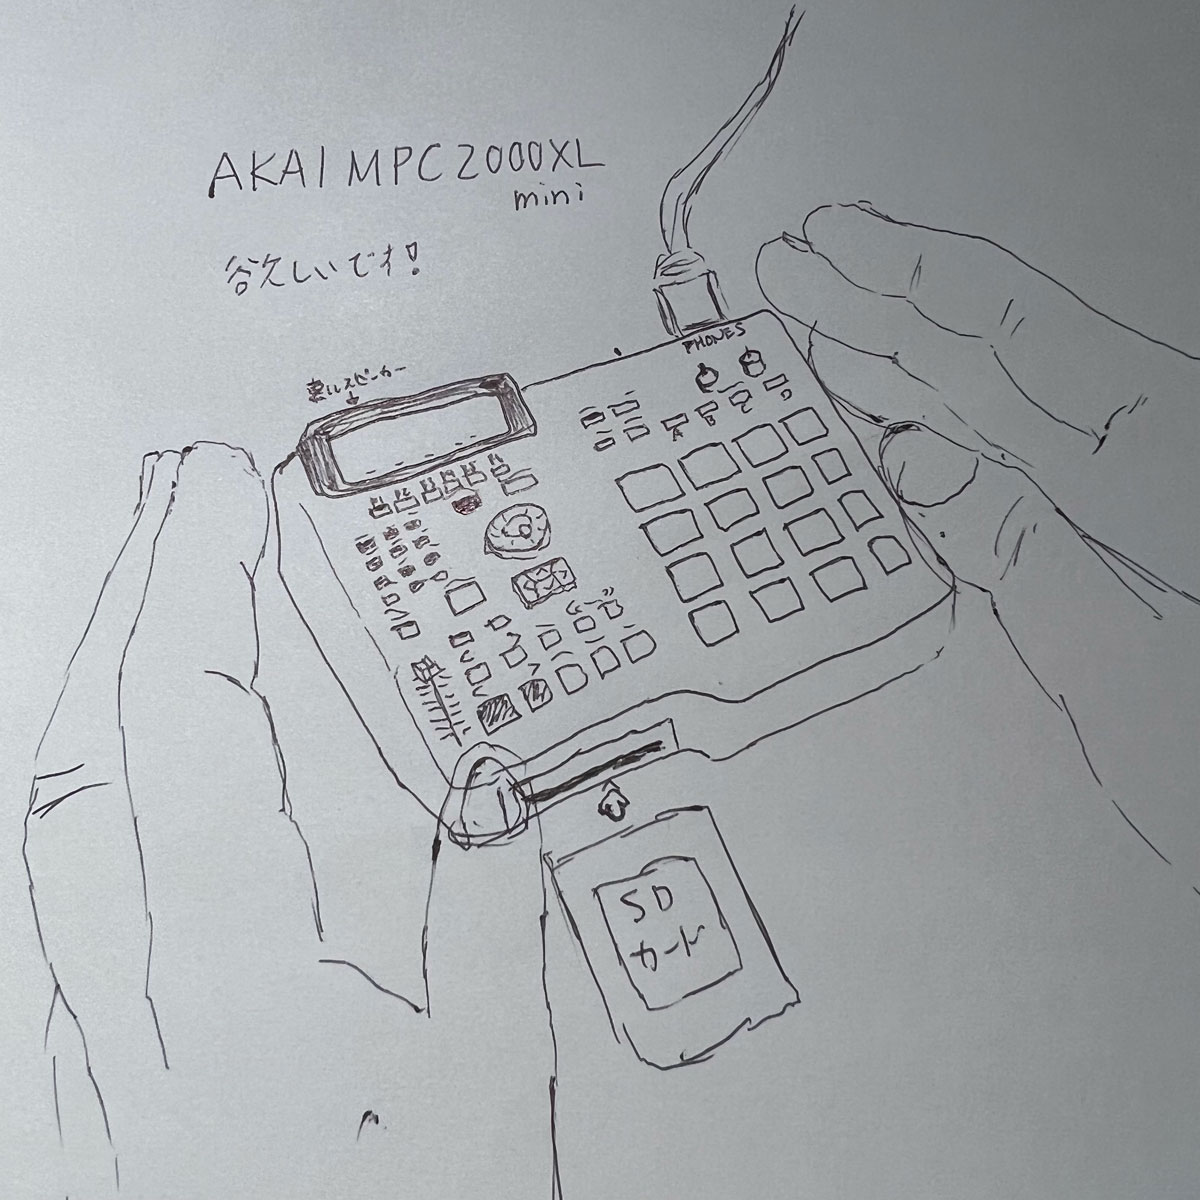 AKAI MPC2000XL
mini
欲しいです!
裏ルスピーカー
PHONES
A B C D
SD
カード